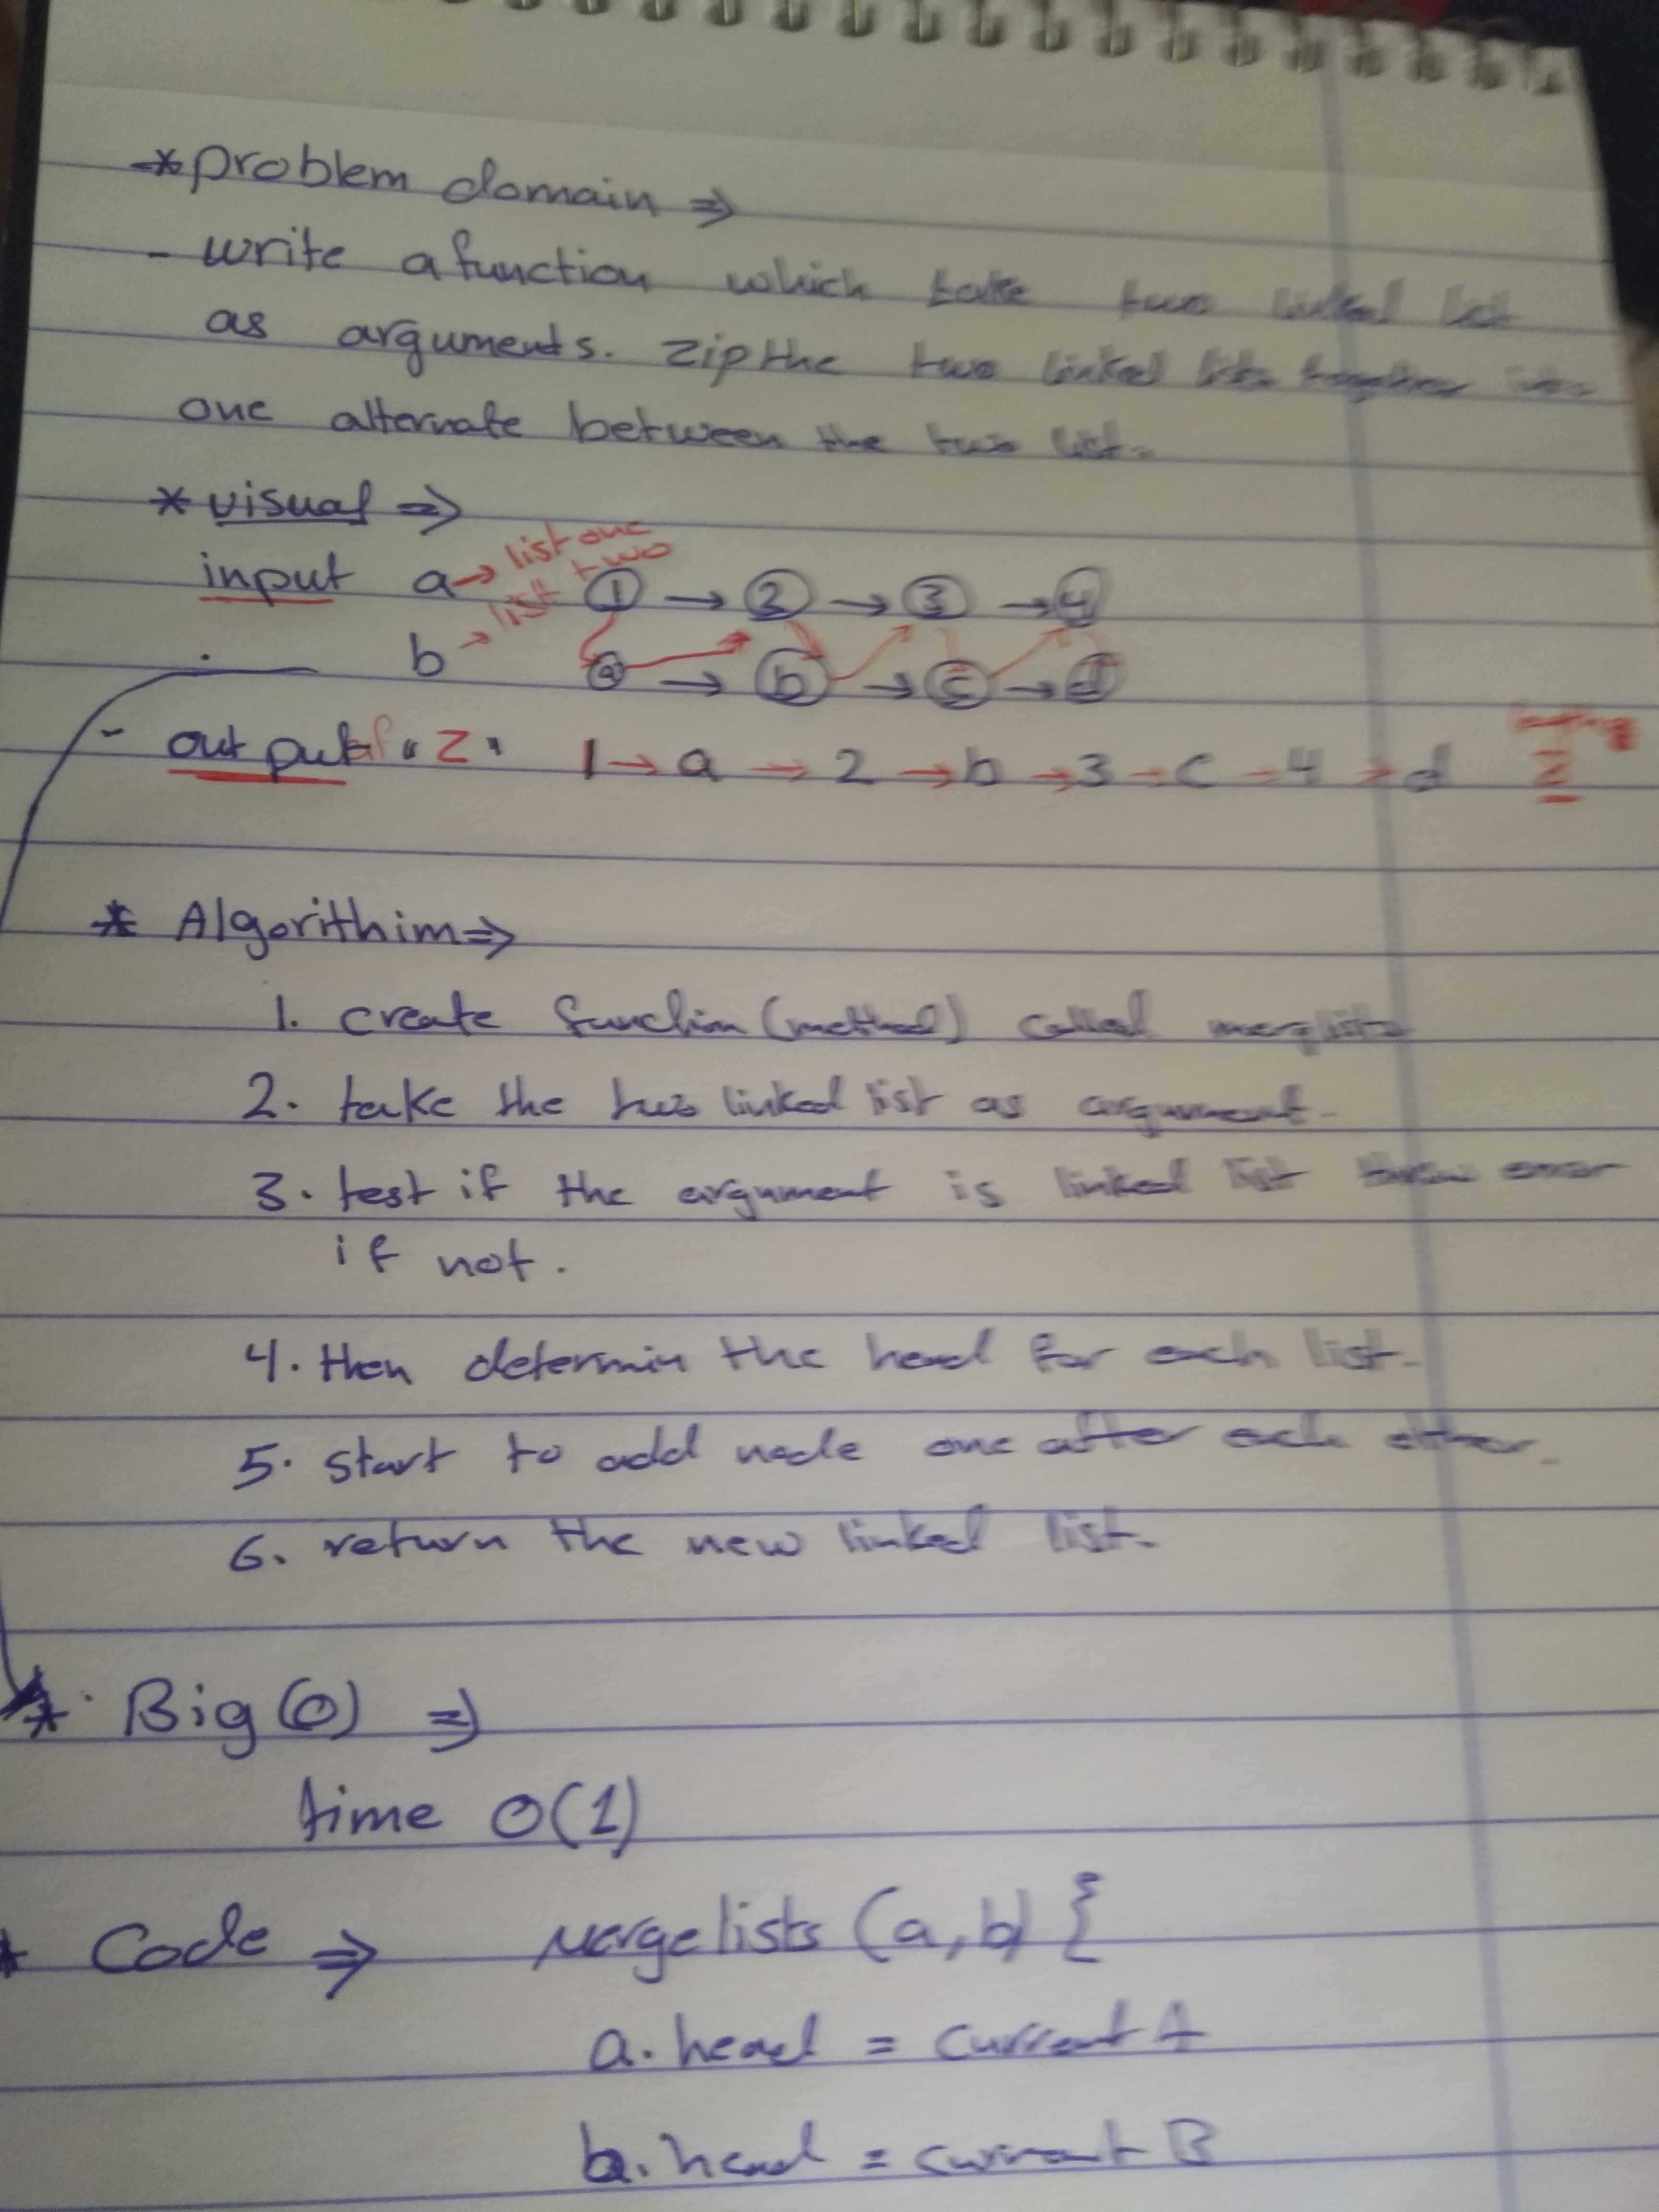 * problem domain ⇒
- write a function which take two linked list
as arguments. Zip the two linked lists together into
one alternate between the two list.
* visual ⇒
input a → list one ① → ② → ③ → ④
b → list two ⓐ → ⓑ → ⓒ → ⓓ
- output of "Z" 1 → a → 2 → b → 3 → c → 4 → d Z
* Algorithim ⇒
1. create function (method) called
2. take the two linked list as argument.
3. test if the argument is linked list throw error
if not.
4. then determin the head for each list.
5. start to add node one after each other.
6. return the new linked list.
* Big (O) ⇒
time O(1)
* Code ⇒ Mergelists (a,b) {
a. head = current A
b. head = current B